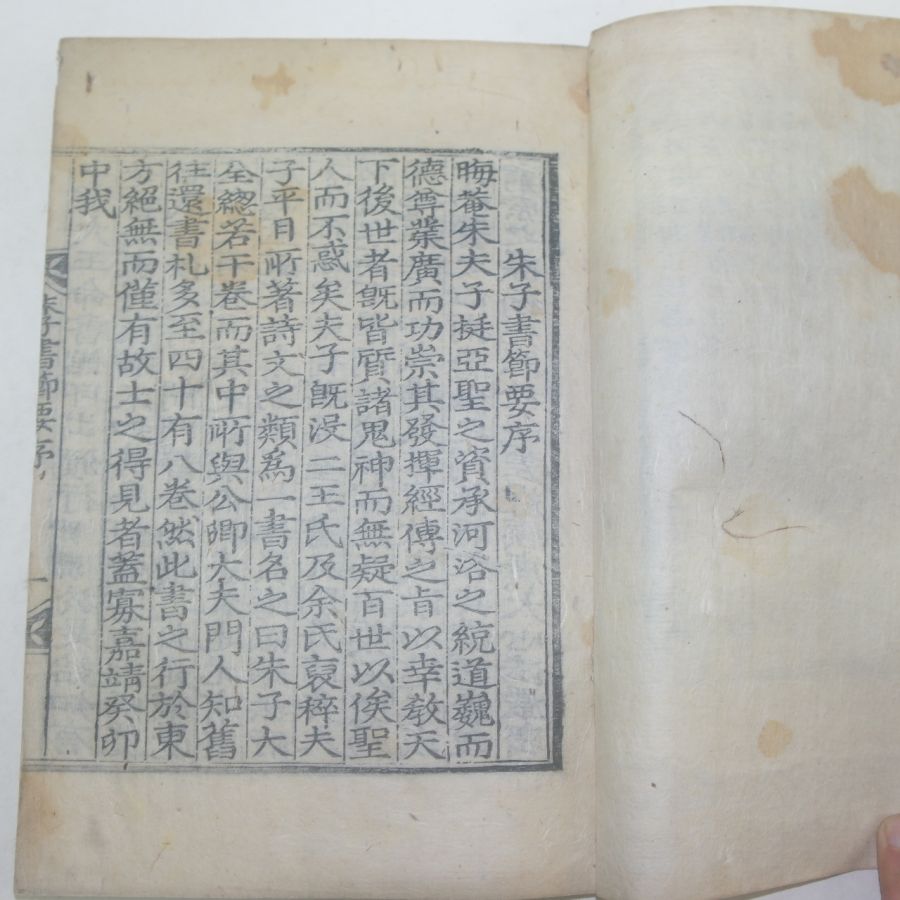 朱子書節要序
晦菴朱夫子挺亞聖之資承河洛之統道巍而
德尊業廣而功崇其發揮經傳之旨以幸教天
下後世者旣皆質諸鬼神而無疑百世以俟聖
人而不惑矣夫子旣沒二王氏及余氏裒稡夫
子平日所著詩文之類爲一書名之曰朱子大
全總若干卷而其中所與公卿大夫門人知舊
往還書札多至四十有八卷然此書之行於東
方絕無而僅有故士之得見者蓋寡嘉靖癸卯
中我
朱子書節要序
一